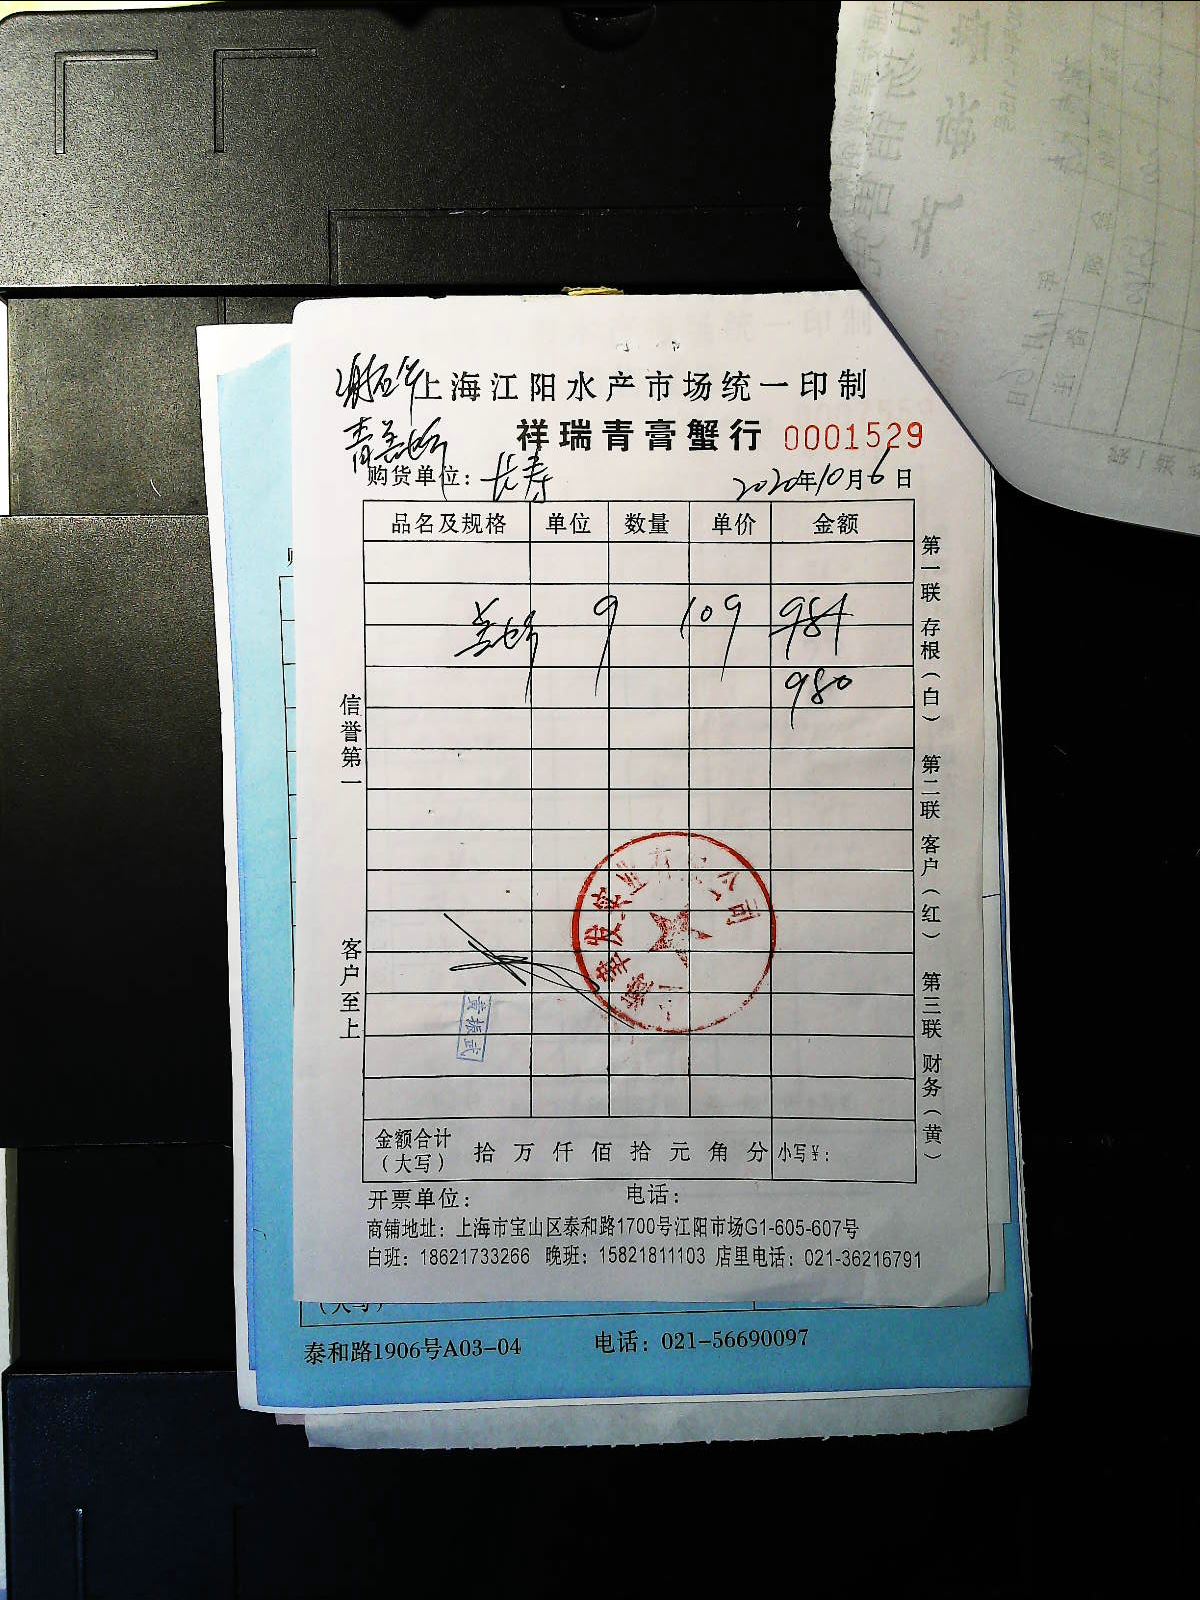 上海江阳水产市场统一印制
祥瑞青膏蟹行 0001529
购货单位：长寿 2020年10月6日
品名及规格 单位 数量 单价 金额
9 109 981
980
信誉第一
客户至上
第一联 存根（白） 第二联 客户（红） 第三联 财务（黄）
发实业有限公司
黄振武
金额合计（大写） 拾 万 仟 佰 拾 元 角 分 小写￥：
开票单位： 电话：
商铺地址：上海市宝山区泰和路1700号江阳市场G1-605-607号
白班：18621733266 晚班：15821811103 店里电话：021-36216791
（大写）
泰和路1906号A03-04 电话：021-56690097